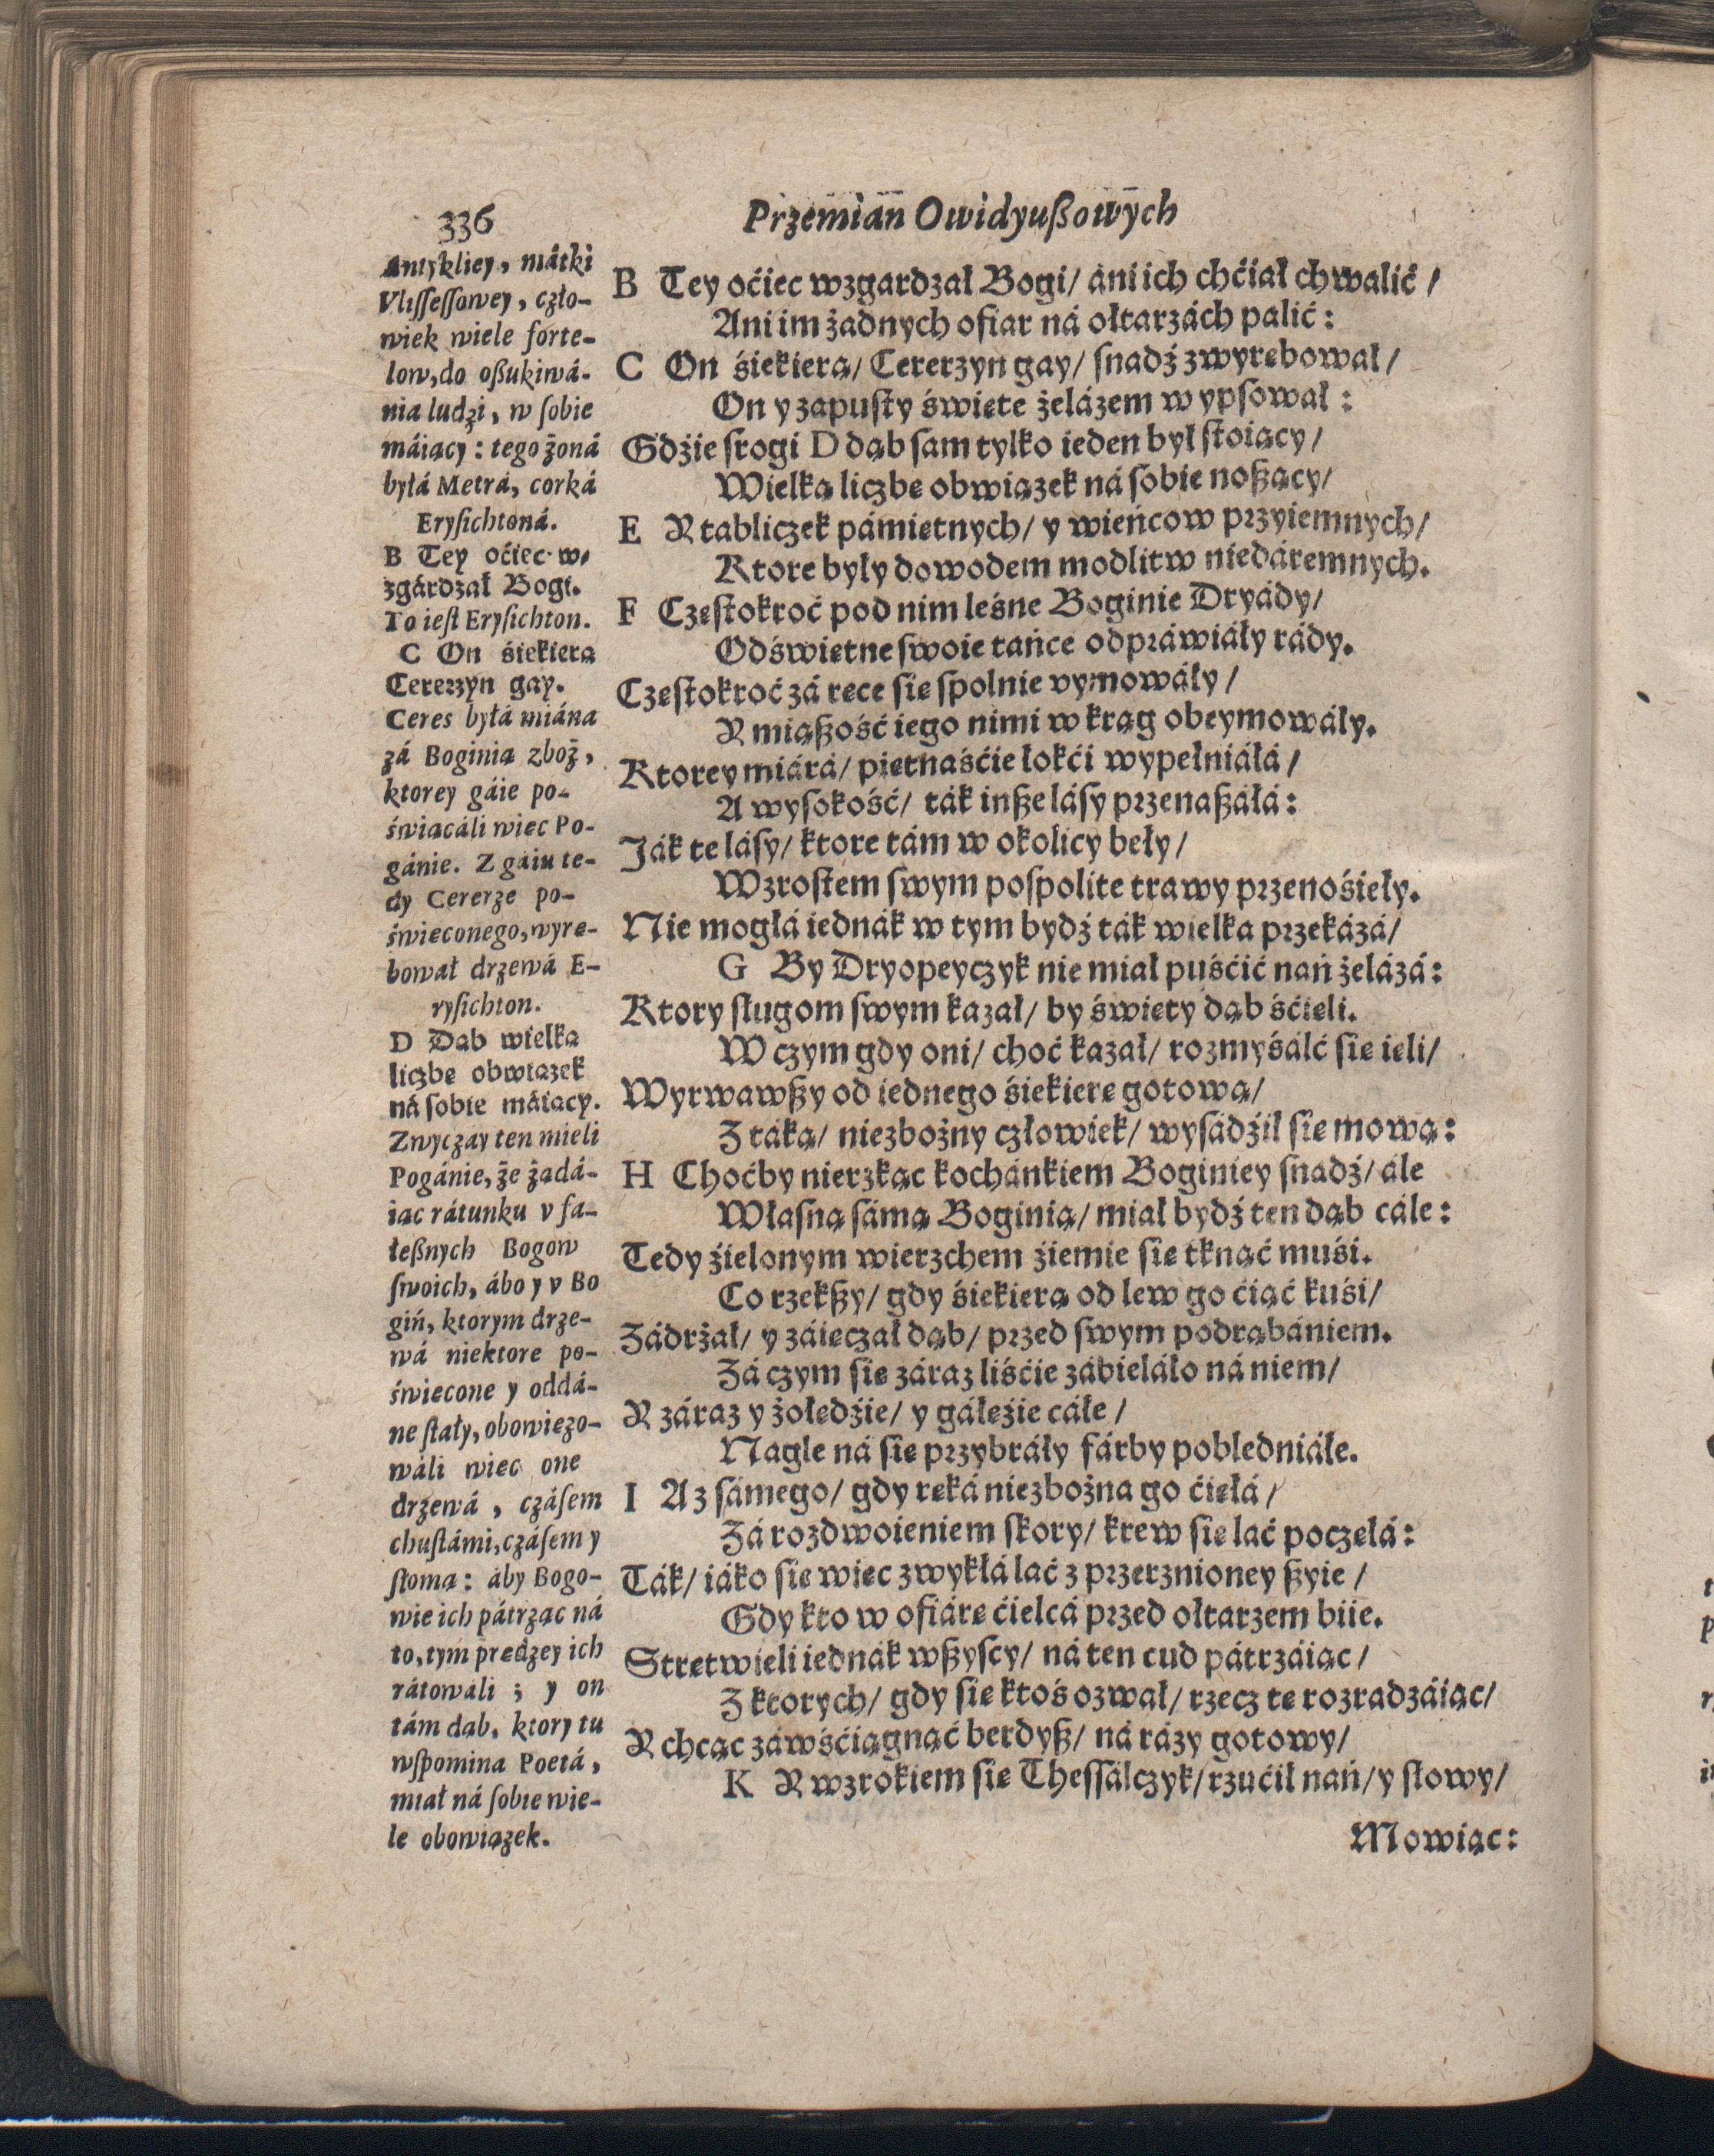 336
Przemian Owidyußowych
Antykliey, mátki
Vlisſeſſowey, czło-
wiek wiele forte-
low, do oßukiwá-
nia ludzi, w ſobie
máiący: tego żoná
byłá Metrá, corká
Eryſichtoná.
B Tey oćiec w-
zgárdzał Bogi.
To ieſt Eryſichton.
C On śiekiera
Cererzyn gay.
Ceres byłá miána
zá Boginia zboż,
ktorey gáie po-
świącáli wiec Po-
gánie. Z gáiu te-
dy Cererze po-
świeconego, wyre-
bował drzewá E-
ryſichton.
D Dab wielka
liczbe obwiazek
ná ſobie máiacy.
Zwyczay ten mieli
Pogánie, że żadá-
iac rátunku v fa-
łeßnych Bogow
ſwoich, ábo y v Bo
giń, ktorym drze-
wá niektore po-
świecone y oddá-
ne ſtały, obowiezo-
wáli wiec one
drzewá, czáſem
chuſtámi, czáſem y
ſłoma: áby Bogo-
wie ich pátrząc ná
to, tym predzey ich
rátowáli; y on
tám dab, ktory tu
wſpomina Poetá,
miał ná ſobie wie-
le obowiązek.
B Tey oćiec wzgardzał Bogi/ áni ich chćiał chwalić/
Ani im żadnych ofiar ná ołtarzách palić:
C On śiekierą/ Cererzyn gay/ ſnadź zwyrebował/
On y zapuſty świete żelázem wypſował:
Gdźie ſrogi D dąb ſam tylko ieden był ſtoiący/
Wielką liczbe obwiązek ná ſobie noßący/
E Y tabliczek pámietnych/ y wieńcow przyiemnych/
Ktore były dowodem modlitw niedáremnych.
F Czeſtokroć pod nim leśne Boginie Dryády/
Odświetne ſwoie tańce odpráwiáły rády.
Czeſtokroć zá rece ſie ſpolnie vymowáły/
Y miąßość iego nimi w krąg obeymowáły.
Ktorey miárá/ pietnaśćie łokći wypełniáłá/
A wyſokość/ ták inße láſy przenaßáłá:
Ják te láſy/ ktore tám w okolicy beły/
Wzroſtem ſwym poſpolite trawy przenośieły.
Nie mogłá iednák w tym bydź ták wielka przekázá/
G By Dryopeyczyk nie miał puśćić nań żelázá:
Ktory ſługom ſwym kazał/ by świety dąb śćieli.
W czym gdy oni/ choć kazał/ rozmyśálć ſie ieli/
Wyrwawßy od iednego śiekiere gotową/
Z táką/ niezbożny człowiek/ wyſádźił ſie mową:
H Choćby nierzkąc kochánkiem Boginiey ſnadź/ ále
Własną ſámą Boginią/ miał bydź ten dąb cále:
Tedy źielonym wierzchem źiemie ſie tknąć muśi.
Co rzekßy/ gdy śiekierą od lew go ćiąć kuśi/
Zádrżał/ y záieczał dąb/ przed ſwym podrąbániem.
Zá czym ſie záraz liśćie zábieláło ná niem/
Y záraz y żołedźie/ y gáłeźie cáłe/
Nagle ná ſie przybráły fárby pobledniáłe.
I A z ſámego/ gdy reká niezbożna go ćiełá/
Zá rozdwoieniem ſkory/ krew ſie lać poczełá:
Ták/ iáko ſie wiec zwykłá lać z przerznioney ßyie/
Gdy kto w ofiáre ćielcá przed ołtarzem biie.
Stretwieli iednák wßyſcy/ ná ten cud pátrzáiąc/
Z ktorych/ gdy ſie ktoś ozwał/ rzecz te rozradzáiąc/
Y chcąc záwśćiągnąć berdyß/ ná rázy gotowy/
K Y wzrokiem ſie Theſſálczyk/ rzućił nań/ y ſłowy/
Mowiąc: